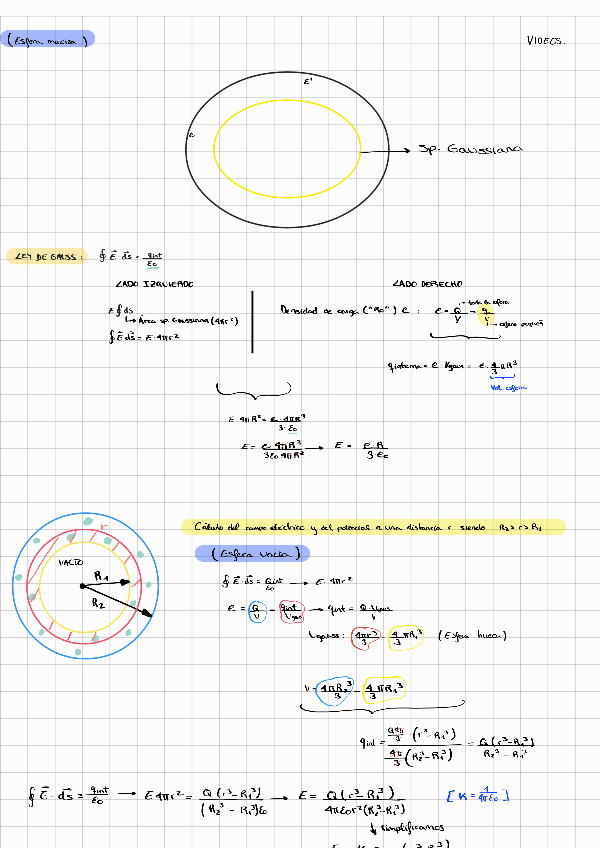 (Esfera maciza)
VIDEOS.
E'
e
Sp. Gaussiana
LEY DE GAUSS: ∮ E⃗ · ds⃗ = qint / ε0
LADO IZQUIERDO
LADO DERECHO
E ∮ ds
Área sp. Gaussiana (4πr²)
∮ E⃗ ds⃗ = E · 4πr²
toda la esfera
Densidad de carga ("Rо") ρ : ρ = Q/V = q/V
esfera pequeña
= ρ · Vgauss = ρ · 4/3 πR³
Vol. esfera
E · 4πR² = ρ · 4πR³ / 3 · ε0
E = ρ 4πR³ / 3ε0 4πR² → E = ρ · R / 3 · ε0
Cálculo del campo eléctrico y del potencial a una distancia r siendo R2 > r > R1
r
VACÍO
R1
R2
(Esfera Vacía)
∮ E⃗ · ds⃗ = Qint / ε0 → E · 4πr²
ρ = Q/V = qint/Vgauss → qint = Q · Vgauss / V
Vgauss: 4πr³/3 - 4/3 πR1³ (Esfera hueca)
V = 4πR2³/3 - 4πR1³/3
qint = Q4π/3 · (r³-R1³) / 4π/3 (R2³-R1³) = Q(r³-R1³) / R2³-R1³
∮ E⃗ · ds⃗ = qint/ε0 → E4πr² = Q(r³-R1³) / (R2³-R1³)ε0 → E = Q(r³-R1³) / 4πε0r²(R2³-R1³) [K = 1/4πε0]
↓ simplificamos